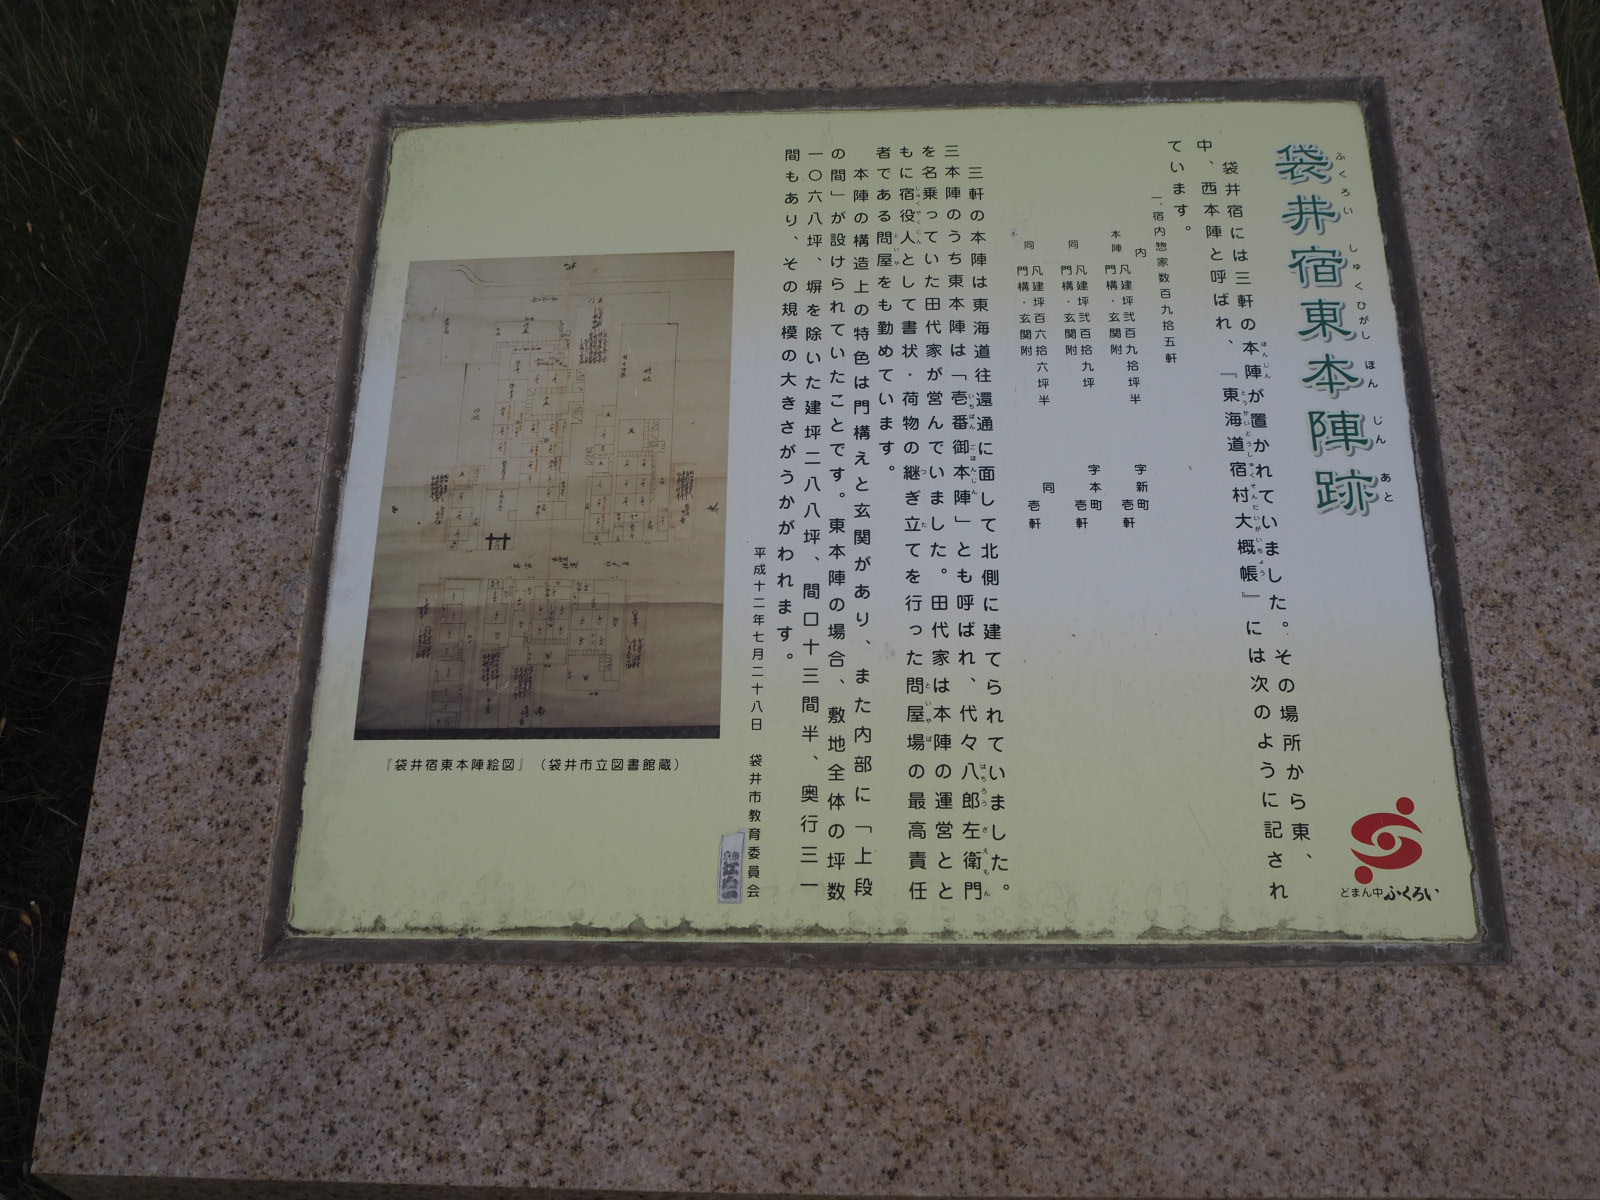 袋井宿東本陣跡
ふくろい しゅくひがし ほん じん あと
袋井宿には三軒の本陣が置かれていました。その場所から東、
中、西本陣と呼ばれ、『東海道宿村大概帳』には次のように記され
ています。
一、宿内惣家数百九拾五軒
内
本陣 凡建坪弐百九拾坪半 字新町 壱軒
門構・玄関附
同 凡建坪弐百拾九坪 字本町 壱軒
門構・玄関附
同 凡建坪百六拾六坪半 同 壱軒
門構・玄関附
三軒の本陣は東海道往還通に面して北側に建てられていました。
三本陣のうち東本陣は「壱番御本陣」とも呼ばれ、代々八郎左衛門
を名乗っていた田代家が営んでいました。田代家は本陣の運営とと
もに宿役人として書状・荷物の継ぎ立てを行った問屋場の最高責任
者である問屋をも勤めています。
本陣の構造上の特色は門構えと玄関があり、また内部に「上段
の間」が設けられていたことです。東本陣の場合、敷地全体の坪数
一〇六八坪、塀を除いた建坪二八八坪、間口十三間半、奥行三一
間もあり、その規模の大きさがうかがわれます。
平成十二年七月二十八日 袋井市教育委員会
『袋井宿東本陣絵図』(袋井市立図書館蔵)
どまん中ふくろい